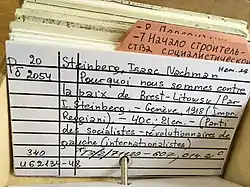 - 8 П
- 7 Начало строитель-
ства социалистическо
P 20
2054
Steinberg, Isaac Nachman
Нем. яз
Pourquoi nous sommes contre
la paix de Brest-Litowsk / Par
I. Steinberg. - Genève, 1918 (Impr.
Reggiani). - 40 с. 21 cm. - (Parti
des socialistes-révolutionnaires de
gauche (internationalistes)
340
U 62134-48